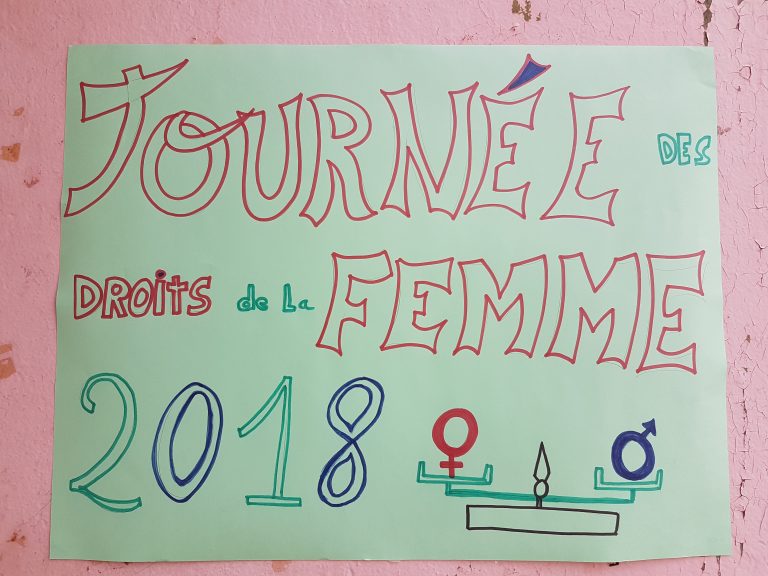 JOURNÉE DES
DROITS de La FEMME
2018